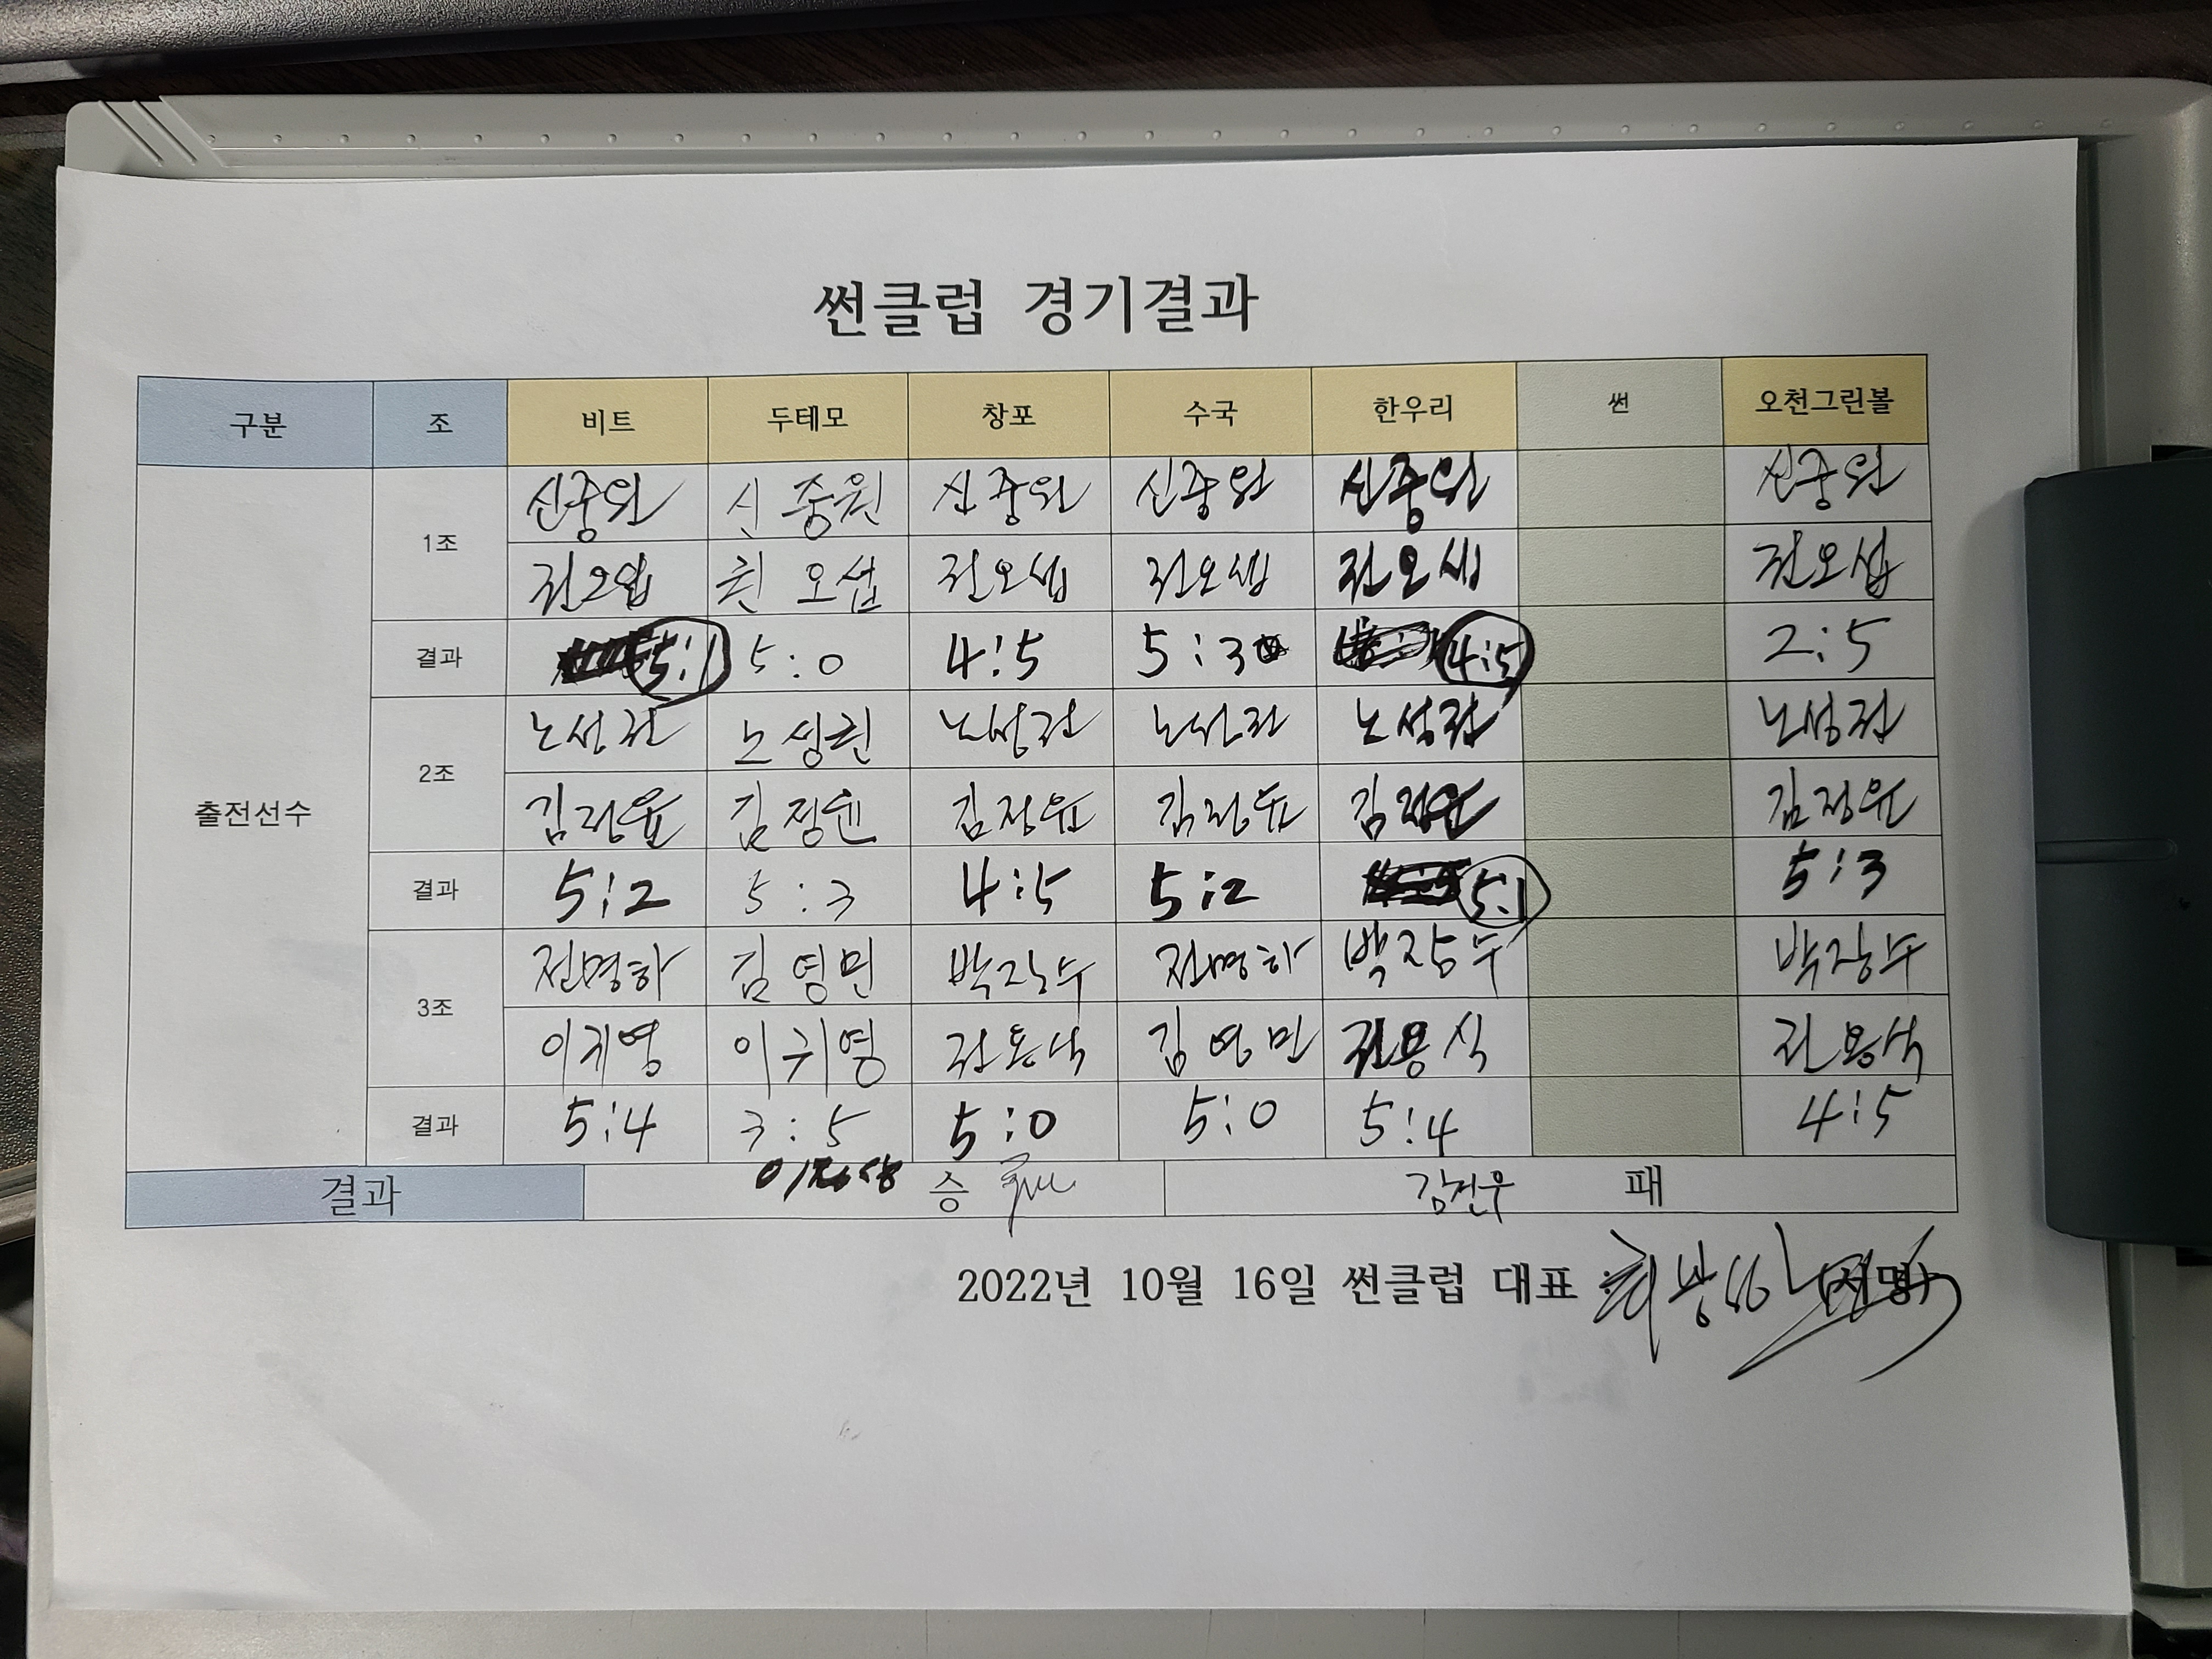 썬클럽 경기결과
구분 조 비트 두테모 창포 수국 한우리 썬 오천그린볼
신중원 신중원 신중원 신중원 신중원 신중원
1조
권오섭 권오섭 권오섭 권오섭 권오섭 권오섭
결과 5:1 5:0 4:5 5:3 4:5 2:5
노성권 노성권 노성권 노성권 노성권 노성권
2조
출전선수
김정윤 김정윤 김정윤 김정윤 김정윤 김정윤
결과 5:2 5:3 4:5 5:2 5:1 5:3
전명하 김영민 박장수 전명하 박장수 박장수
3조
이귀영 이귀영 김영민
결과 5:4 3:5 5:0 5:0 5:4 4:5
결과 승 패
2022년 10월 16일 썬클럽 대표 : (서명)